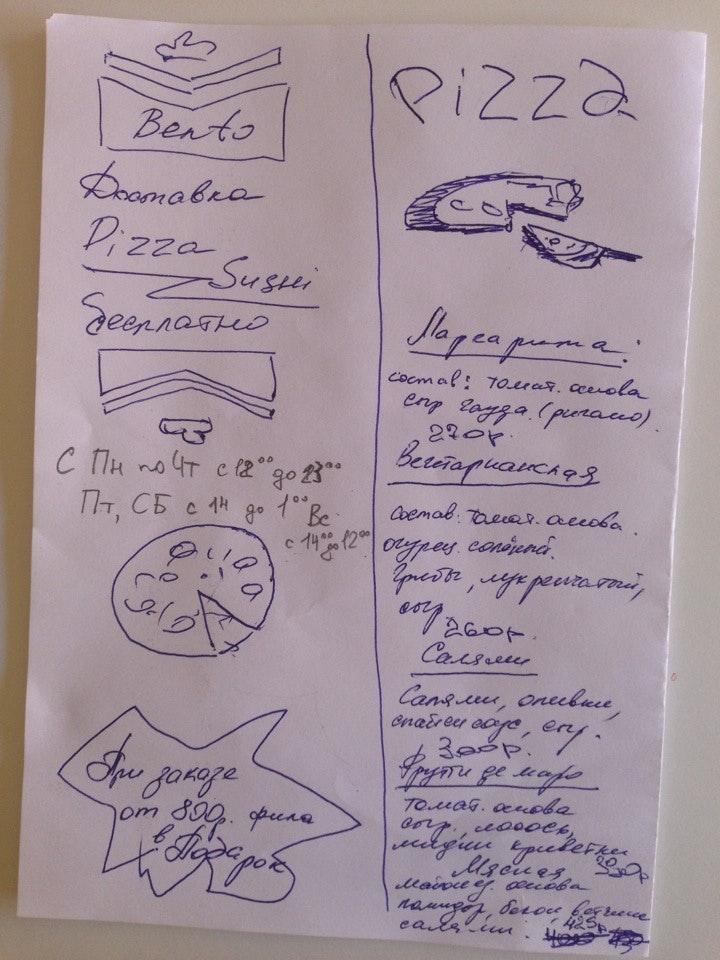 Bento
Доставка
Pizza
Sushi
Бесплатно
С Пн по Чт с 12⁰⁰ до 23⁰⁰
Пт, СБ с 14 до 1⁰⁰ Вс
с 14⁰⁰ до 12⁰⁰
При заказе
от 800р. фила
в Подарок
Pizza
Маргарита:
состав: томат. основа
сыр гауда. (ригано).
270р.
Вегтарианская
состав: томат. основа.
огурец солёный.
Грибы, лук репчатый,
сыр
260р.
Салями
Салями, оливки,
спайси соус, сыр.
300р.
Фрутти де маре
томат. основа
сыр, лосось,
мидии креветки
Мясная
майонез. основа
помидор, бекон, ветчина
салями: 425р